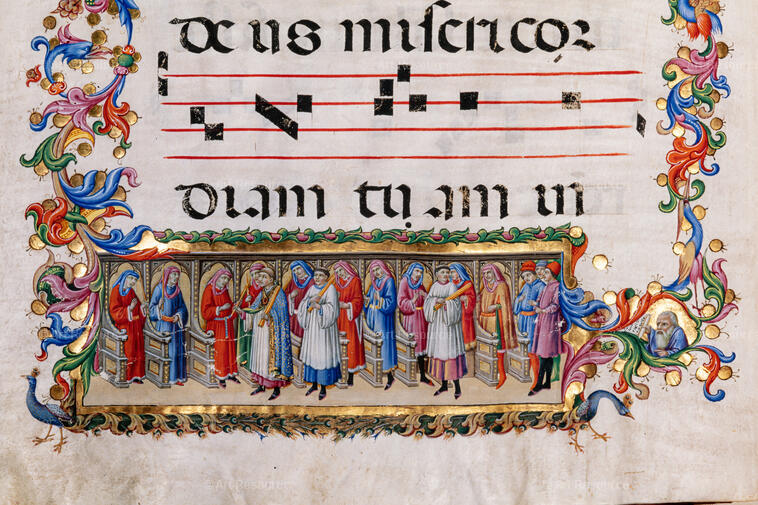 deus misericor
diam tuam in
© Art Resource
© Art Resource